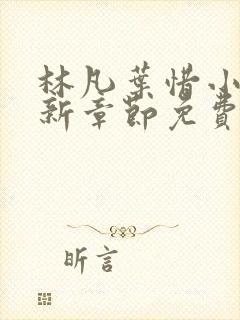 林凡葉惜小
新章節免費
昕言